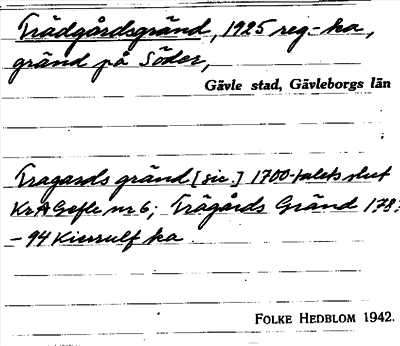 Trädgårdsgränd, 1925 reg.-ka,
gränd på Söder,
Gävle stad, Gävleborgs län
Tragards gränd [sic.] 1700-talets slut
KrA Gefle nr 6; Trägårds Gränd 178
-94 Kierrulf ka
FOLKE HEDBLOM 1942.